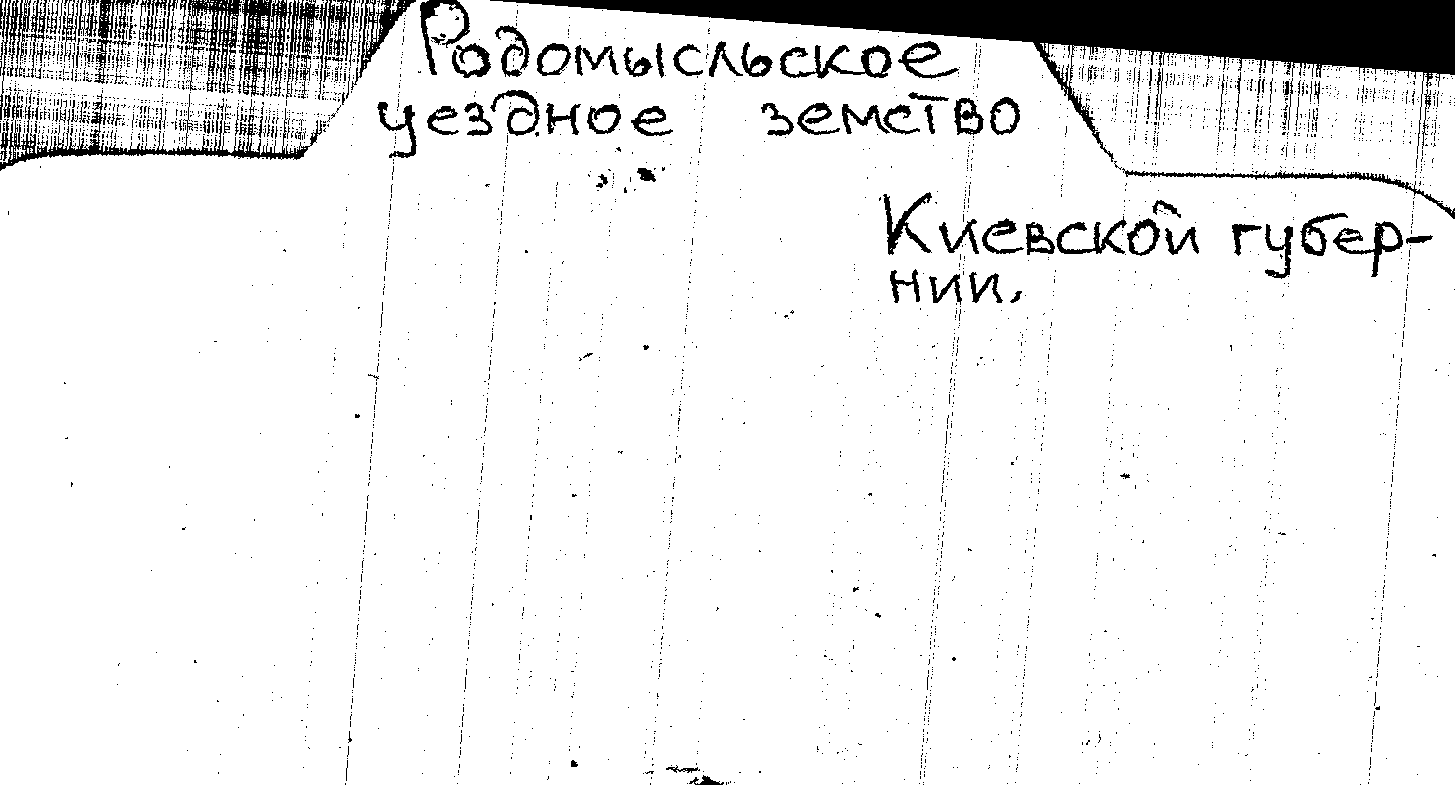 Родомысльское
уездное земство
Киевской губер-
нии.